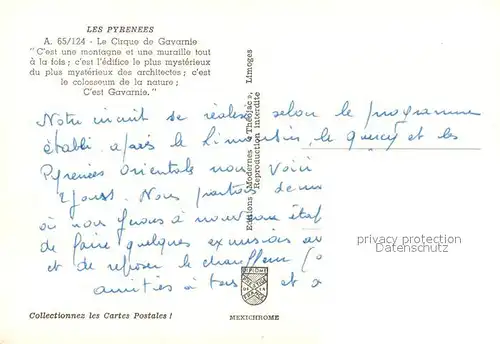 LES PYRENEES
A. 65/124 - Le Cirque de Gavarnie
"C'est une montagne et une muraille tout
à la fois ; c'est l'édifice le plus mystérieux
du plus mystérieux des architectes ; c'est
le colosseum de la nature ;
C'est Gavarnie."
Notre circuit se réalise selon le programme
établi. après le Limousin, le quercy et les
Pyrénées Orientales nous voici
2 jours. Nous partons
où nous ferons à nouveau
de faire quelques excursions
et de reposer le chauffeur
amitiés à tous et
Editions Modernes « Théojac », Limoges
Reproduction interdite
privacy protection
Datenschutz
Collectionnez les Cartes Postales !
MEXICHROME